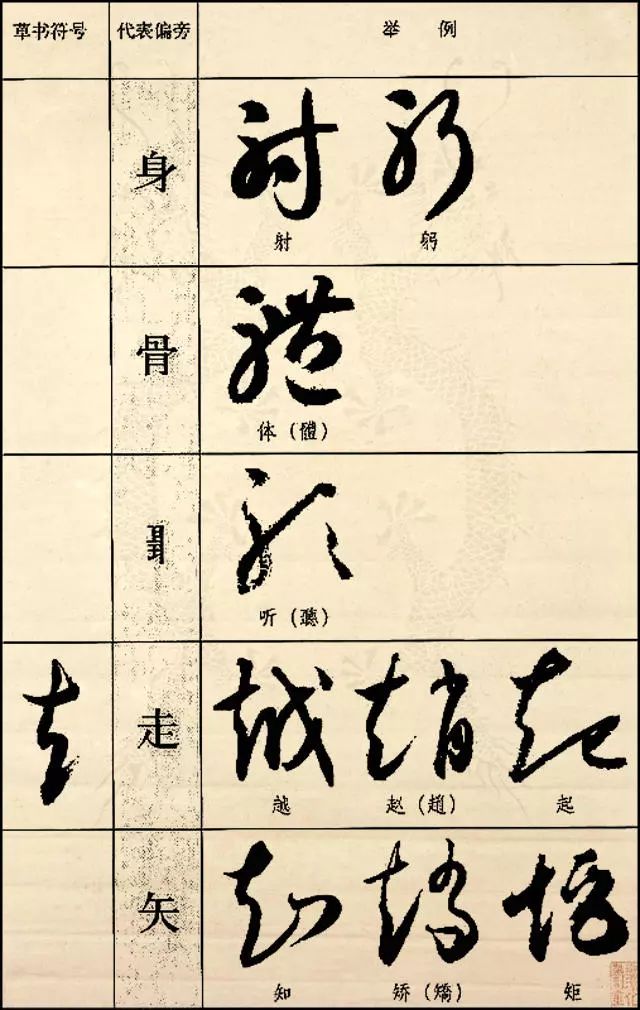 草书符号 代表偏旁 举例
身
射 躬
骨
体（體）
听（聽）
走
越 赵（趙） 起
矢
知 矫（矯） 矩